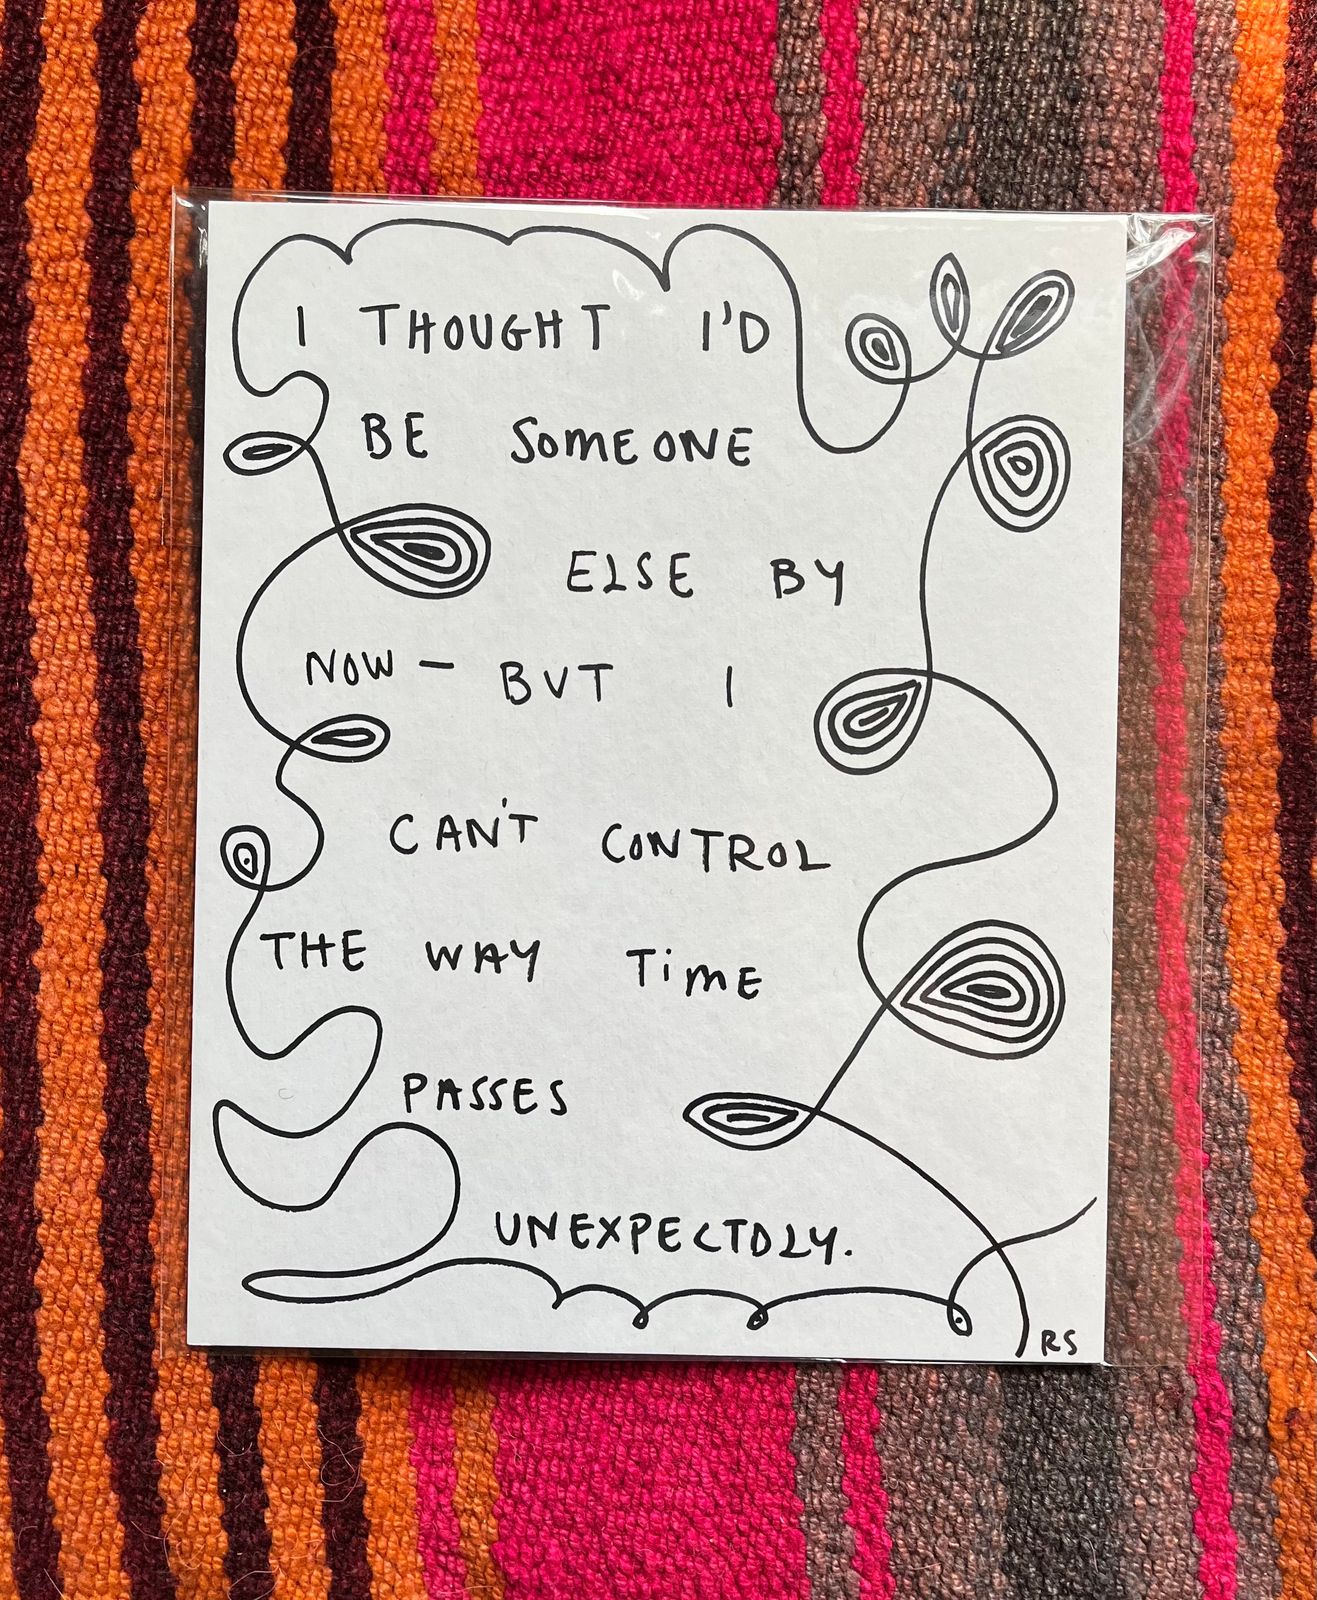 I THOUGHT I'D
BE SOMEONE
ELSE BY
NOW - BUT I
CAN'T CONTROL
THE WAY TiME
PASSES
UNEXPECTDLY.
RS